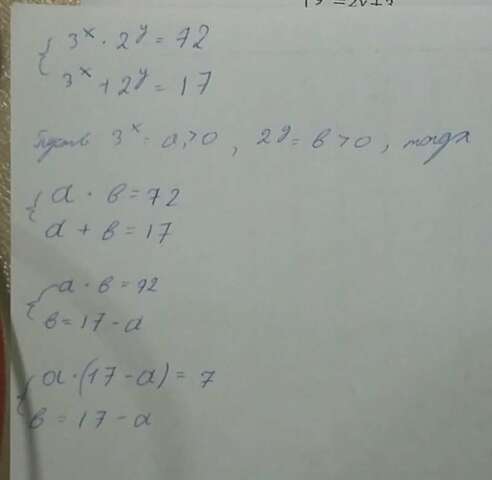 3ˣ · 2ʸ = 72
3ˣ + 2ʸ = 17
Пусть 3ˣ = a > 0, 2ʸ = в > 0, тогда
a · в = 72
a + в = 17
a · в = 72
в = 17 - a
a · (17 - a) = 7
в = 17 - a